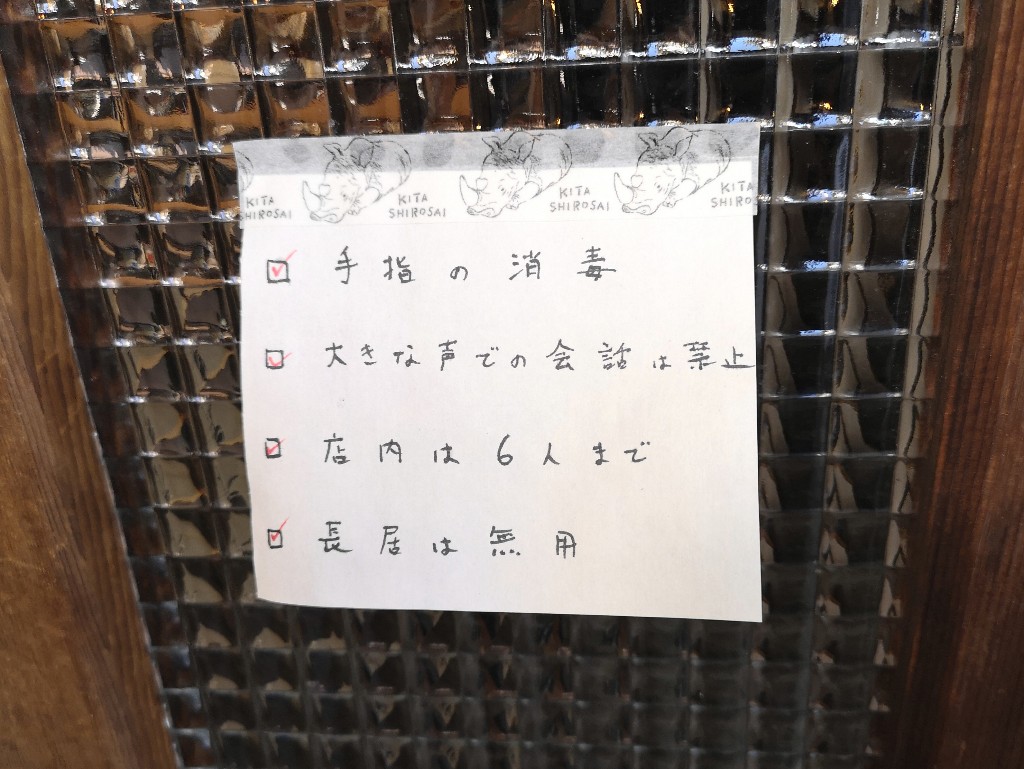 KITA SHIROSAI KITA SHIROSAI KITA SHIROSAI KITA SHIROS
手指の消毒
大きな声での会話は禁止
店内は6人まで
長居は無用